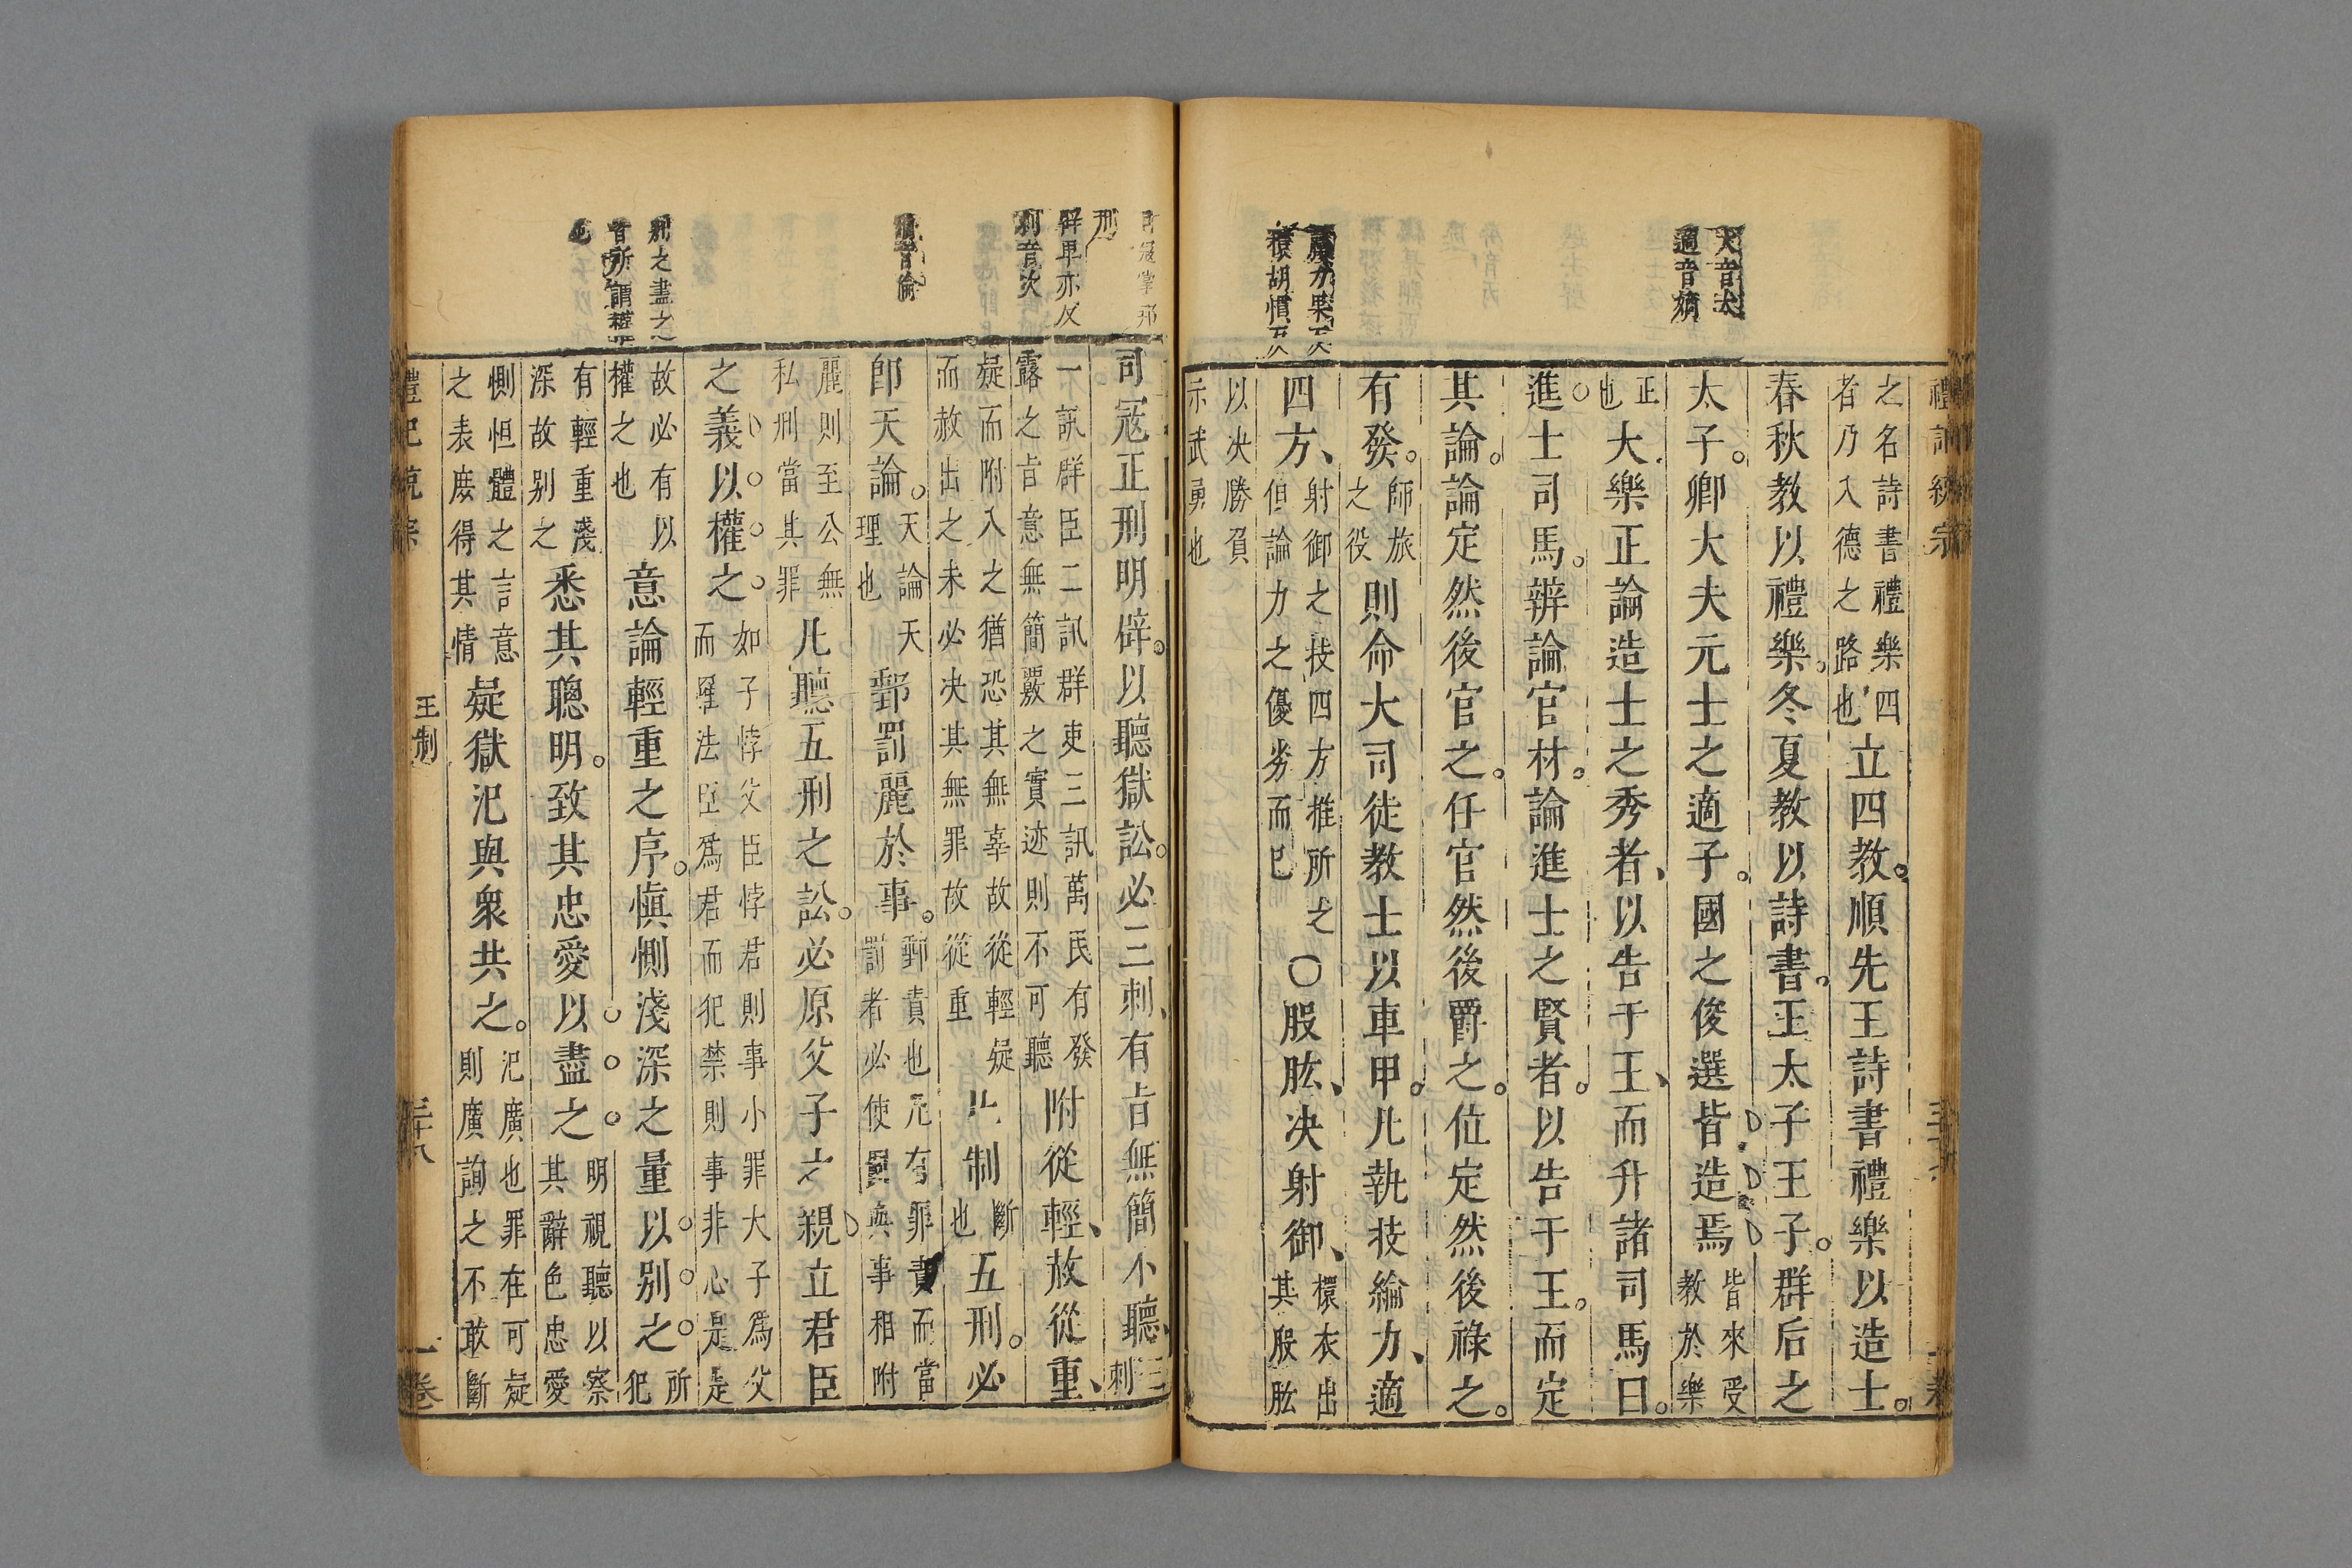 大音太
適音嫡
臝力果反
擐胡慣反
禮記統宗
之名詩書禮樂四
者乃入德之路也
立四教順先王詩書禮樂以造士
春秋教以禮樂冬夏教以詩書王太子王子群后之
太子卿大夫元士之適子國之俊選皆造焉
皆來受
教於樂
正
也
大樂正論造士之秀者以告于王而升諸司馬曰
進士司馬辨論官材論進士之賢者以告于王而定
其論論定然後官之任官然後爵之位定然後祿之
有發
師旅
之役
則命大司徒教士以車甲凡執技論力適
四方
射御之技四方推所之
但論力之優劣而已
〇股肱决射御
擐衣出
其股肱
以决勝負
示武勇也
司寇掌邦
刑
辟畢亦反
刺音次
倫音倫
別之盡之
音所謂權
也
司寇正刑明辟以聽獄訟必三刺有旨無簡不聽
三
刺
一訊群臣二訊群吏三訊萬民有發
露之旨意無簡覈之實迹則不可聽
附從輕赦從重
疑而附入之猶恐其無辜故從輕疑
而赦出之未必决其無罪故從重
制
斷
也
五刑必
即天論
天論天
理也
郵罰麗於事
郵責也凡有罪責而當
罰者必使罰與事相附
麗則至公無
私刑當其罪
凡聽五刑之訟必原父子之親立君臣
之義以權之
如子悖父臣悖君則事小罪大子爲父
而羅法臣爲君而犯禁則事非心是是
故必有以
權之也
意論輕重之序慎惻淺深之量以别之
所
犯
有輕重淺
深故别之
悉其聰明致其忠愛以盡之
明視聽以察
其辭色忠愛
惻怛體之言意
之表庻得其情
疑獄汜與衆共之
汜廣也罪在可疑
則廣詢之不敢斷
禮記統宗
王制
三十八
一卷